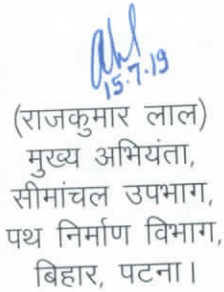 15.7.19
(राजकुमार लाल)
मुख्य अभियंता,
सीमांचल उपभाग,
पथ निर्माण विभाग,
बिहार, पटना।